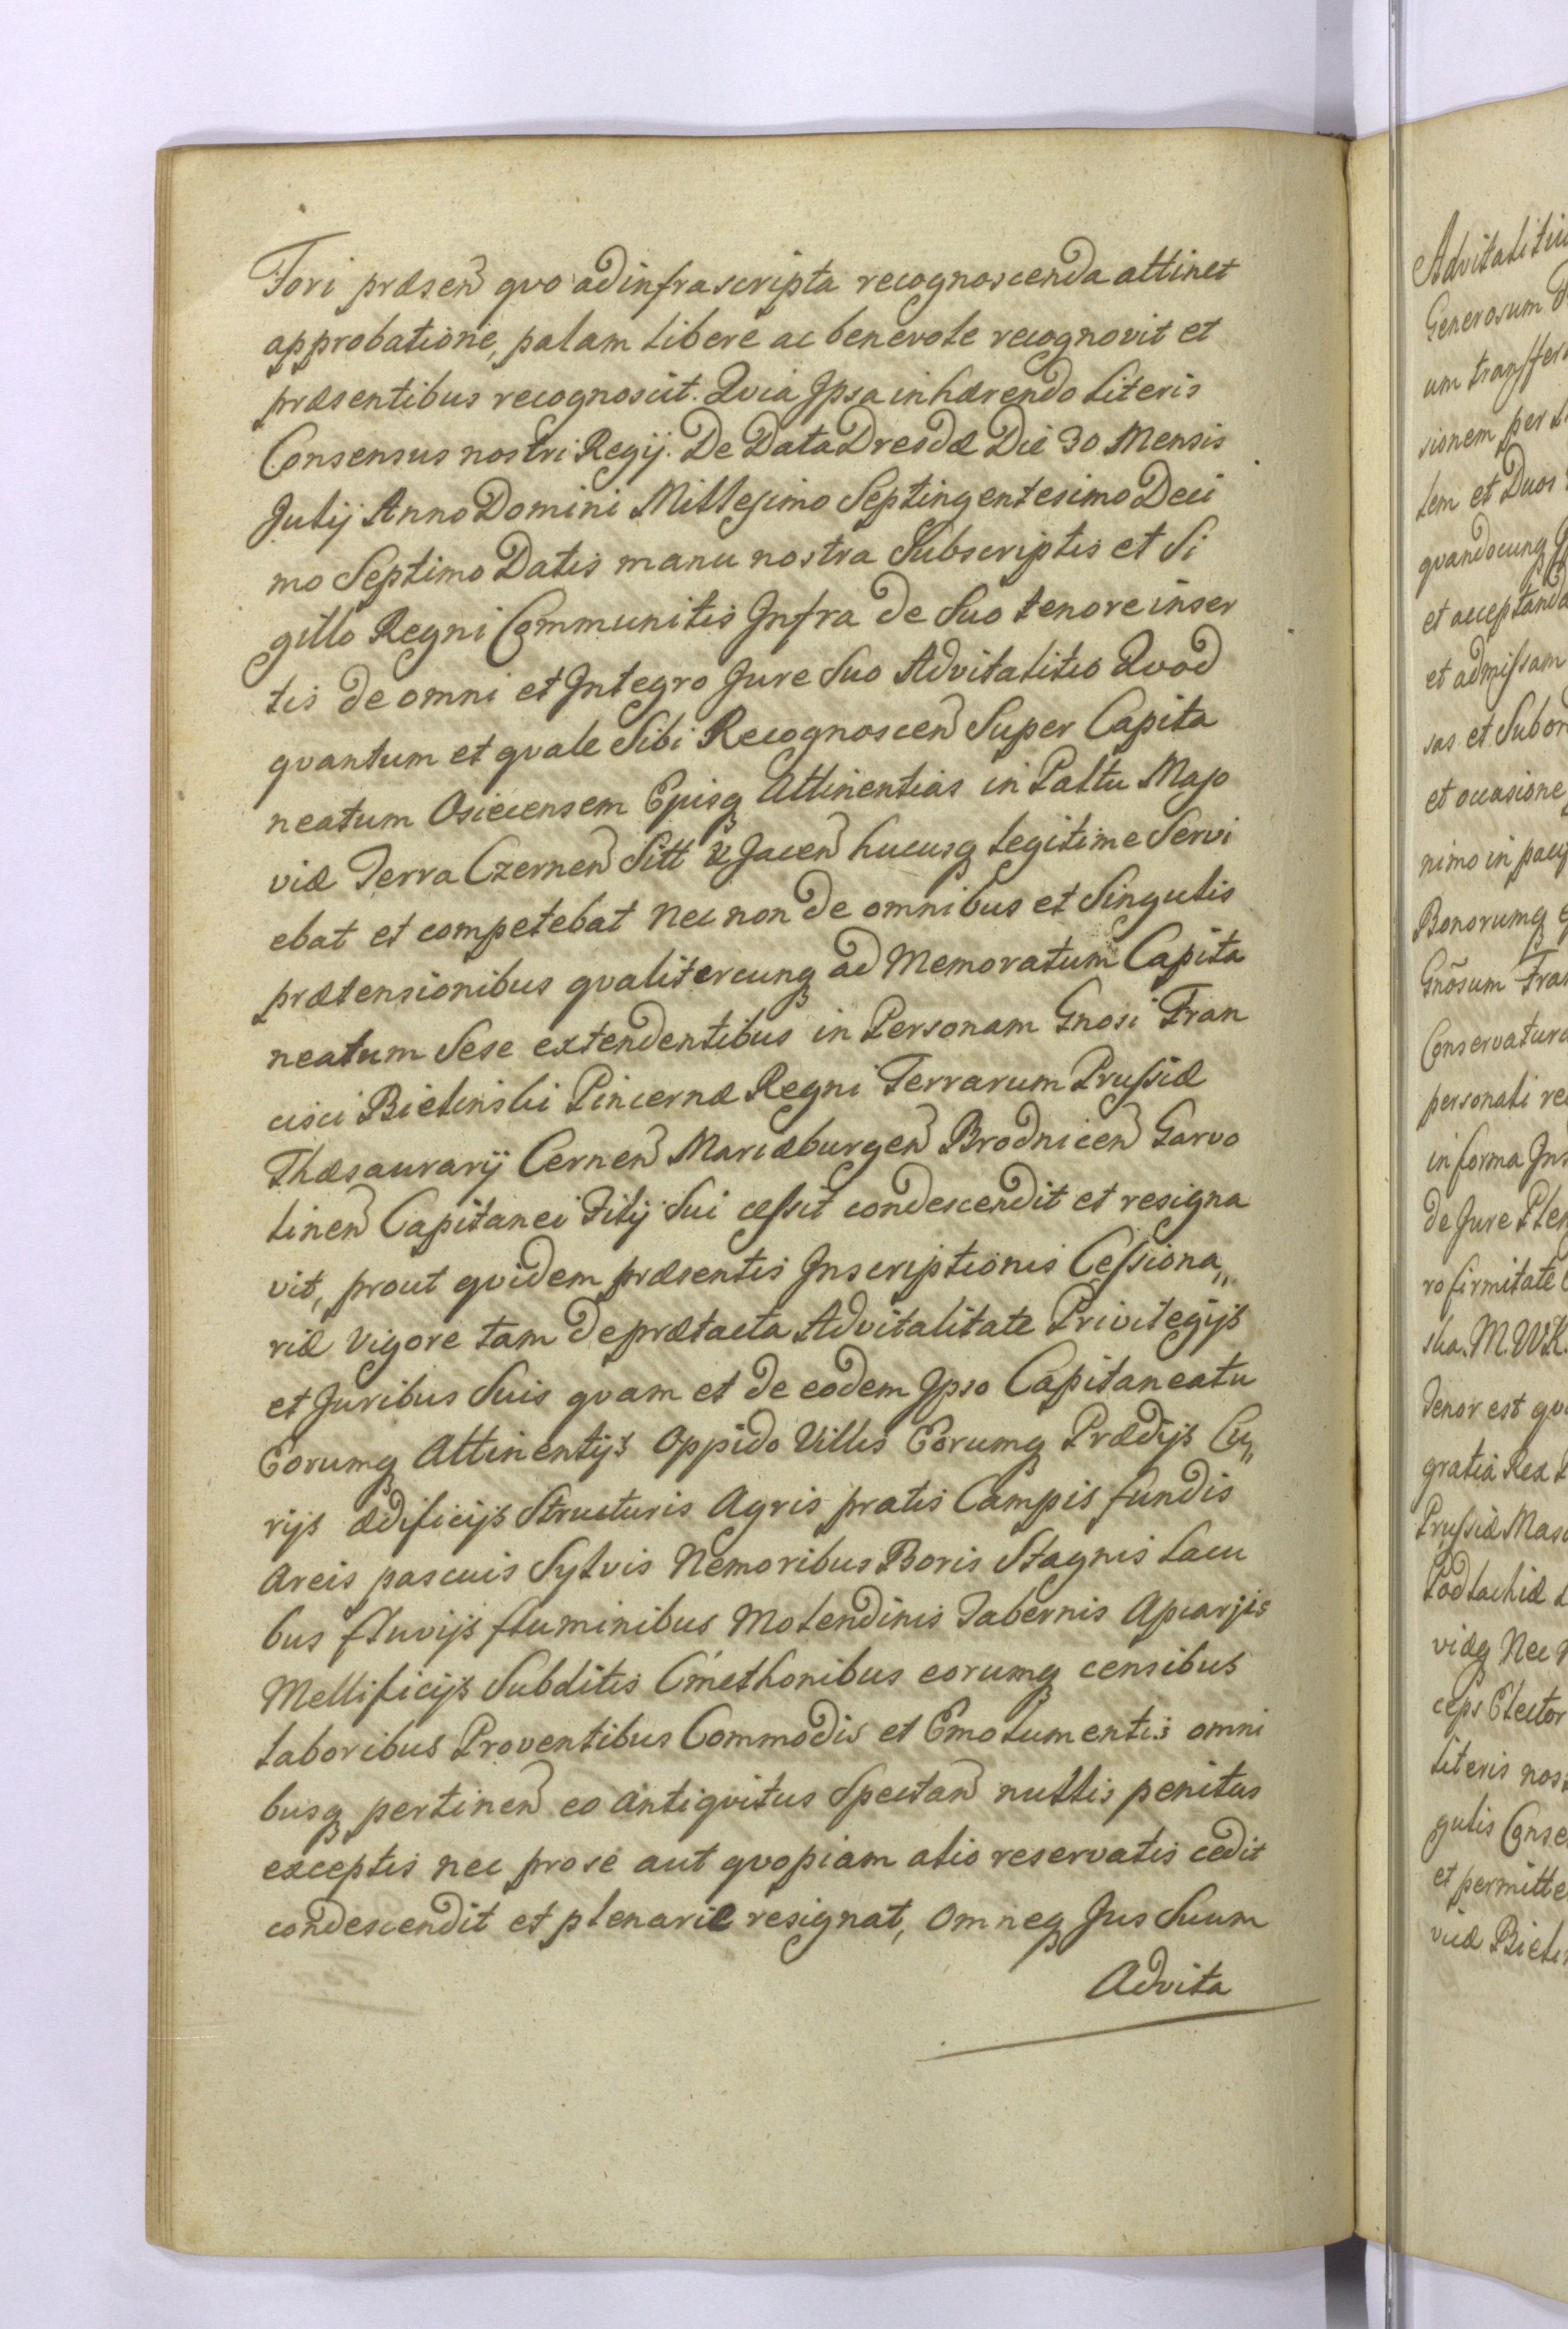 Fori præsen quo ad infrascripta recognoscenda attinet
approbatione, palam libere ac benevole recognovit et
præsentibus recognoscit. Qvia Jpsa inhærendo literis
Consensus nostri Regij. De Data Dresdæ Die 30 Mensis
Julij Anno Domini Millesimo Septingentesimo Deci
mo Septimo Datis manu nostra Subscriptis et Si
gillo Regni Communitis Jnfra de Suo tenore inser
tis de omni et Jntegro Jure Suo Advitalitio Qvod
qvantum et qvale Sibi Recognoscen Super Capita
neatum Osiecensem Ejusq Attinentias in Paltu Maso
viæ Terra Czernen Sitt & Jacen hucusq legitime Servi
ebat et competebat Nec non de omnibus et Singulis
prætensionibus qvalitercunq ad Memoratum Capita
neatum Sese extendentibus in Personam Gnosi Fran
cisci Bielinski Pincernæ Regni Terrarum Prussiæ
Thæsaurarij Cernen Mariæburgen Brodnicen Garvo
linen Capitanei Filij Sui cessit condescendit et resigna
vit, prout qvidem præsentis Jnscriptionis Cessiona„
riæ Vigore tam de prætacta Advitalitate Privilegijs
et Juribus Suis qvam et de eodem Jpso Capitaneatu
Eorumq Attinentijs Oppido Villis Eorumq Prædijs Cu„
rijs ædificijs Structuris Agris pratis Campis fundis
Areis pascuis Sylvis Nemoribus Boris Stagnis Lacu
bus fluvijs fluminibus Molendinis Tabernis Apiarijs
Mellificijs Subditis Cmethonibus eorumq censibus
laboribus Proventibus Commodis et Emolumentis omni
busq pertinen eo Antiqvitus Spectan nullis penitus
exceptis nec pro se aut qvopiam alio reservatis cedit
condescendit et plenarie resignat, Omneq Jus Suum
Advita
Generosum
um transfer
sionem per
tem et Duos
et acceptanda
et admissam
sas et Subor
et occasione
nimo in paci
Bonorumq
Gnõsum Fran
Conservatura
personali re
in forma Jns
de Jure Plen
ro firmitate
ska. M. W. K.
Tenor est qvi
gratia Rex
Prussiæ Maso
Podlachiæ
viæq Nec
ceps Elector
literis nos
gulis Conse
et permitte